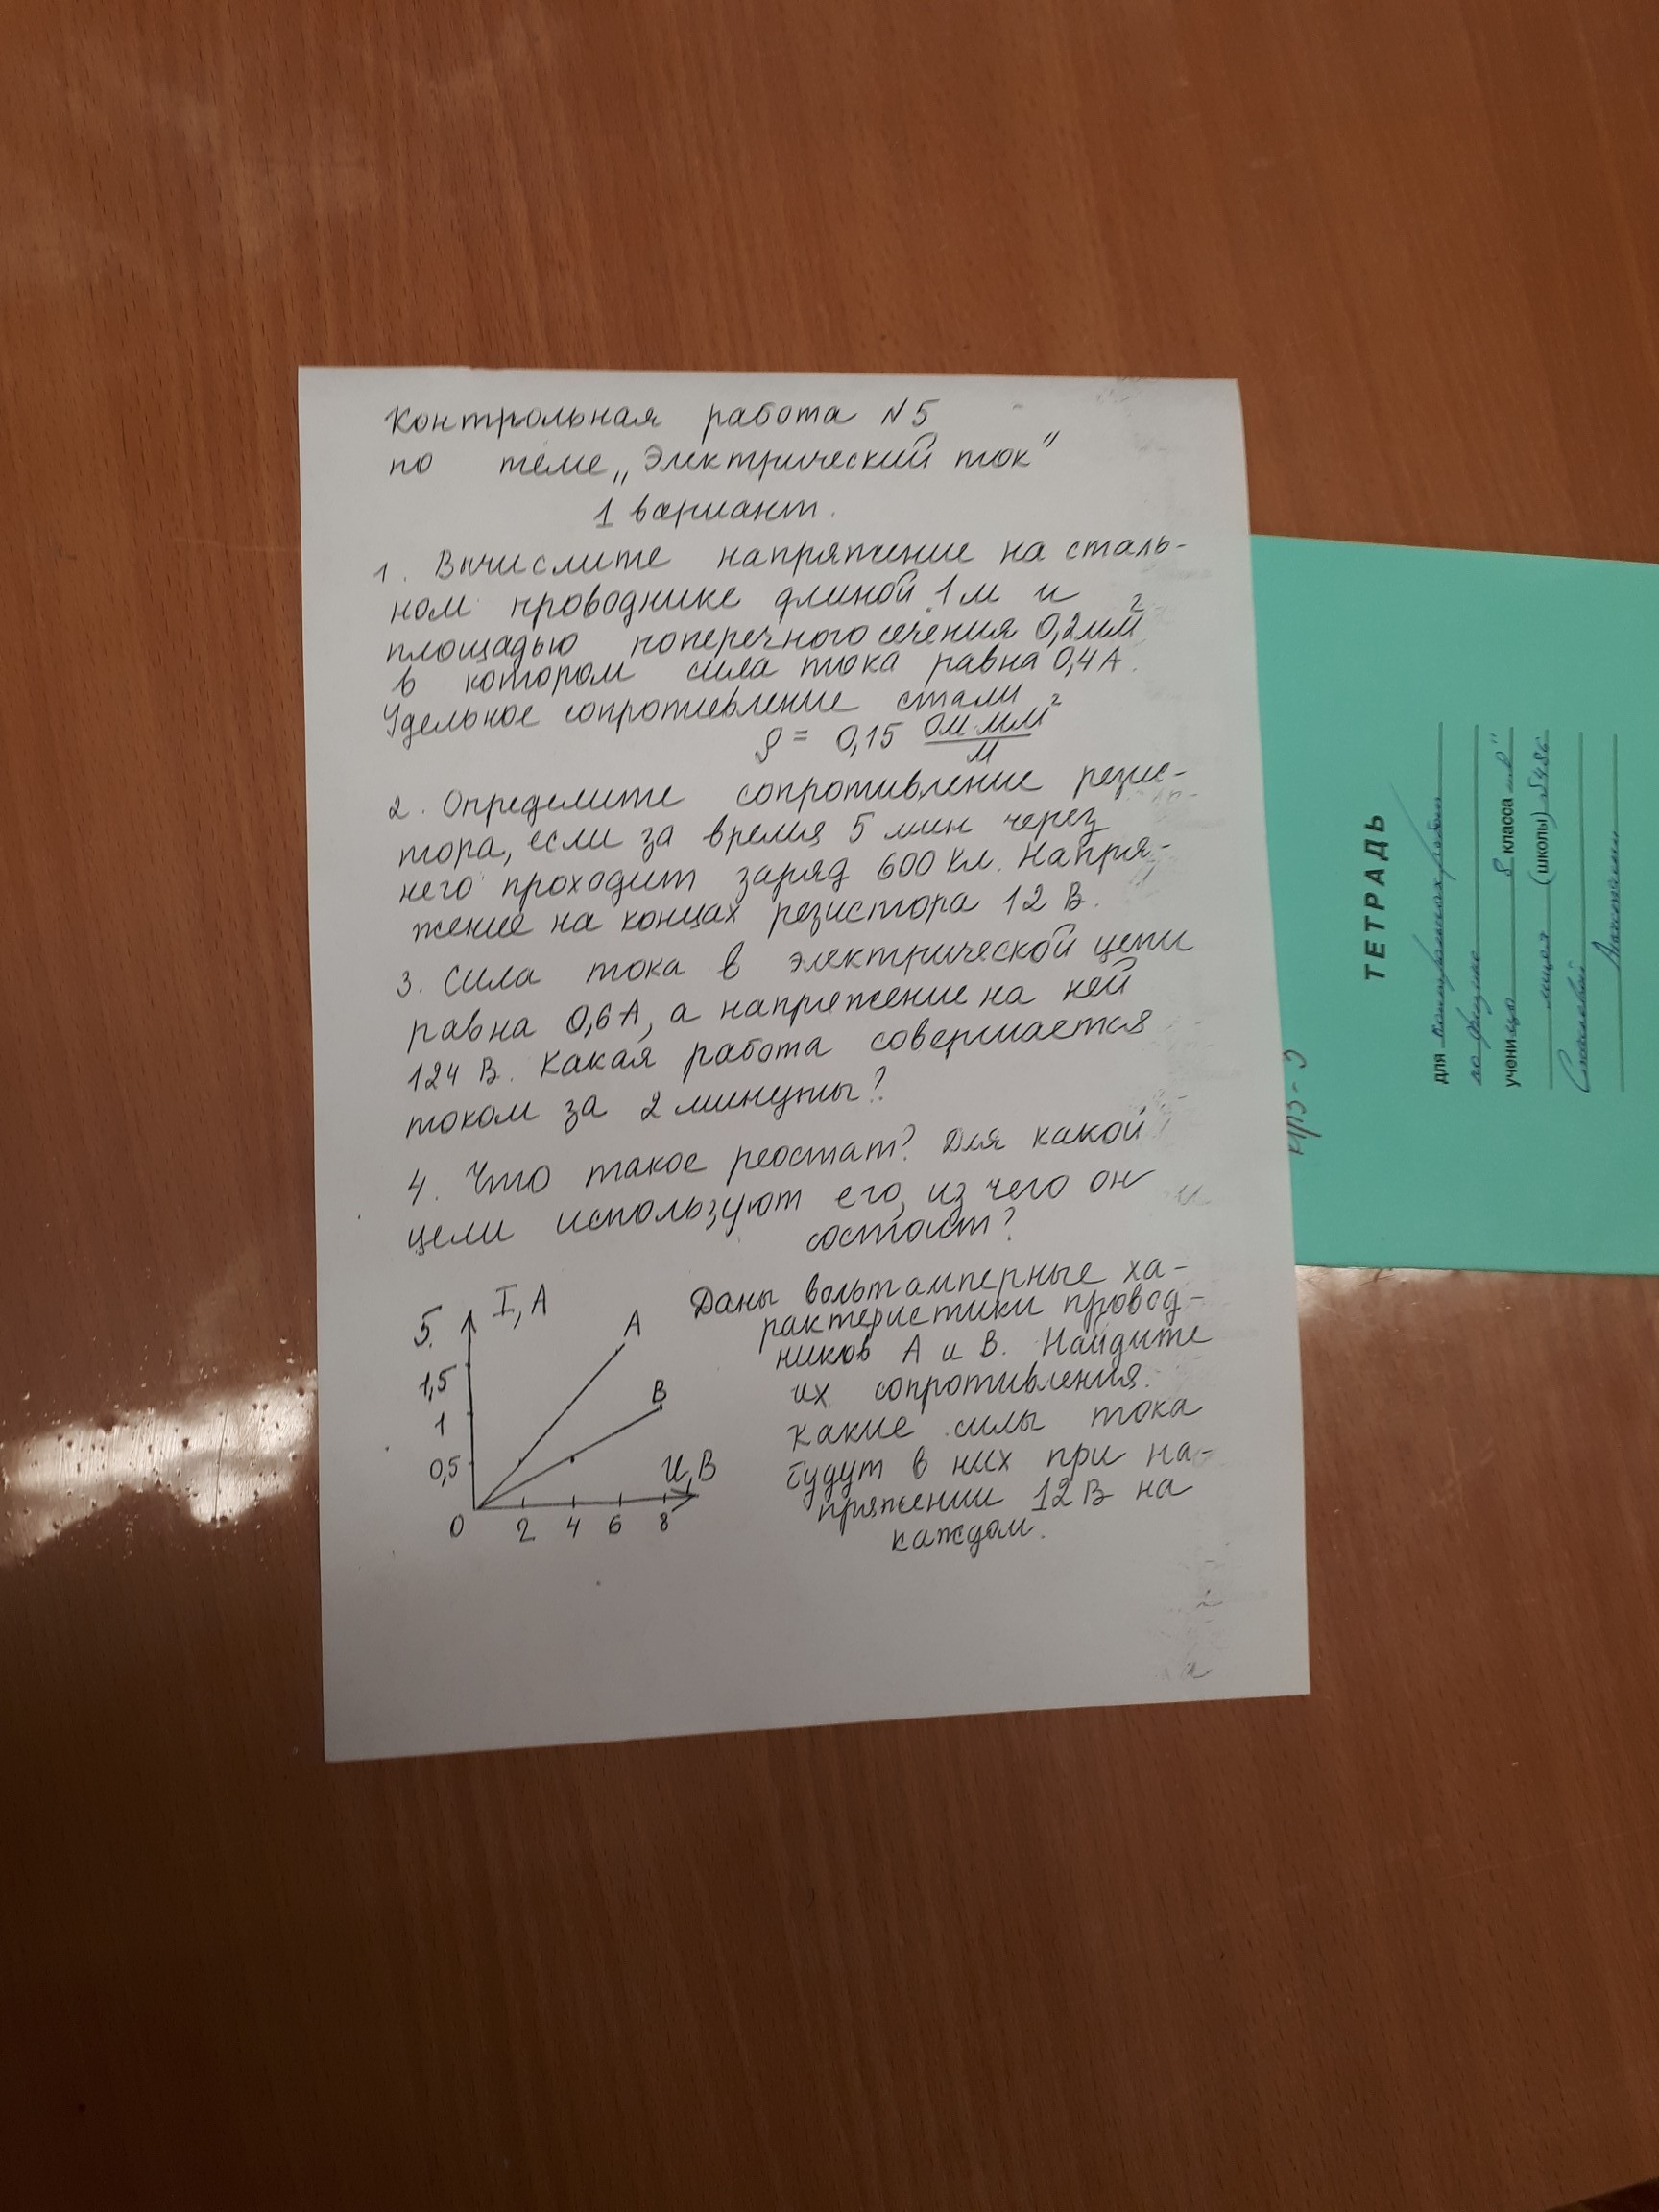 Контрольная работа №5
по теме „Электрический ток"
1 вариант.
1. Вычислите напряжение на сталь-
ном проводнике длиной 1 м и
площадью поперечного сечения 0,2 мм²
в котором сила тока равна 0,4 А.
Удельное сопротивление стали
ρ = 0,15 Ом·мм²/м
2. Определите сопротивление резис-
тора, если за время 5 мин через
него проходит заряд 600 Кл. Напря-
жение на концах резистора 12 В.
3. Сила тока в электрической цепи
равна 0,6 А, а напряжение на ней
124 В. Какая работа совершается
током за 2 минуты?
4. Что такое реостат? Для какой
цели используют его, из чего он
состоит?
5. I, А
1,5
1
0,5
0 2 4 6 8
U, В
А
В
Даны вольтамперные ха-
рактеристики провод-
ников А и В. Найдите
их сопротивления.
Какие силы тока
будут в них при на-
пряжении 12 В на
каждом.
ТЕТРАДЬ
для
по физике
учени цы 8 класса
лицея (школы) №486